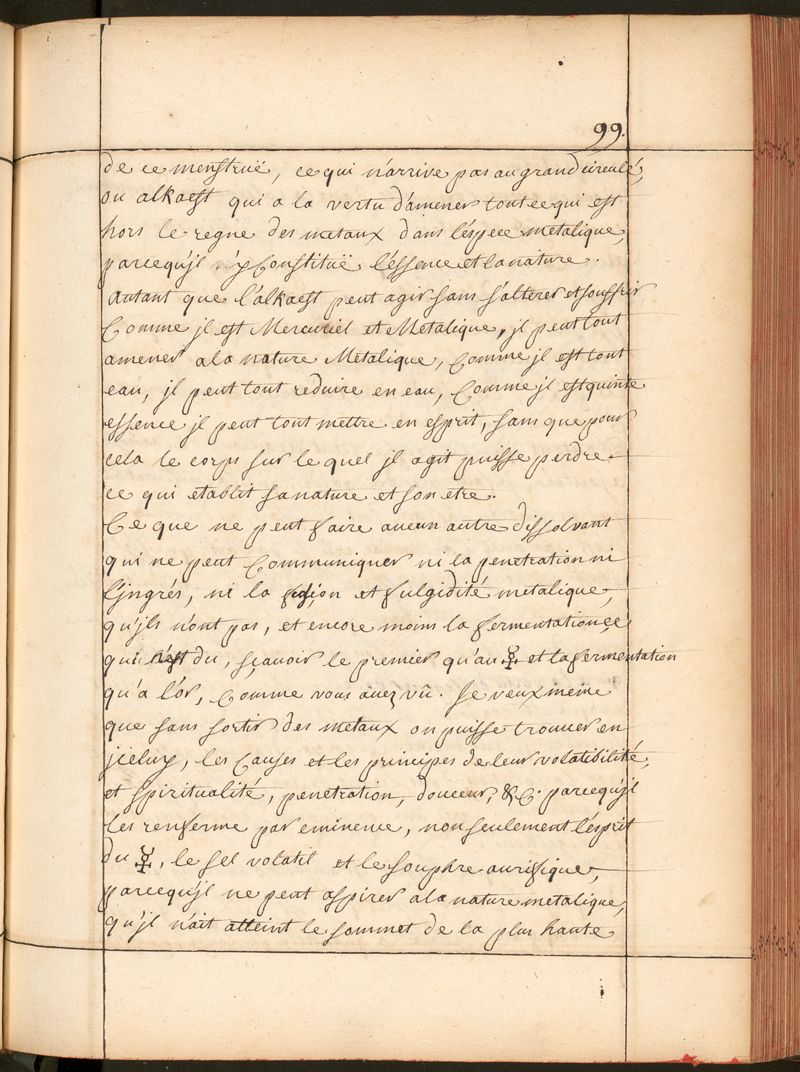 99.
de ce menstruë, ce qui n'arrive pas au grand circulé,
ou alkaest qui a la vertu d'amener tout ce qui est
hors le regne des metaux dans l'éspece metalique,
parcequ'jl n'y Constituë l'éssence et la nature.
Autant que l'alkaest peut agir sans s'alterer et souffrir
Comme jl est Mercuriel et Metalique, jl peut tout
amener a la nature Metalique, Comme jl est tout
eau, jl peut tout reduire en eau, Comme jl est quinte
essence jl peut tout mettre en esprit, sans que pour
cela le corps sur le quel jl agit puisse perdre
ce qui etablit sa nature et son etre.
Ce que ne peut faire aucun autre dissolvant
qui ne peut Communiquer ni la penetration ni
l'jngrés, ni la fusion et fulgidité metalique,
qu'jls n'ont pas, et encore moins la fermentation, ce
qui n'est du, sçavoir le premier qu'au ☿ et la fermentation
qu'a l'or, Comme vous avez vû. Je veux meme
que sans sortir des metaux on puisse trouver en
jceluy, les Causes et les principes de leur volatibilité,
et spiritualité, penetration, douceur, &c. parcequ'jl
les renferme par eminence, non seulement l'ésprit
du ☿, le sel volatil et le souphre aurifique,
parcequ'jl ne peut aspirer a la nature metalique,
qu'jl n'ait atteint le sommet de la plus haute